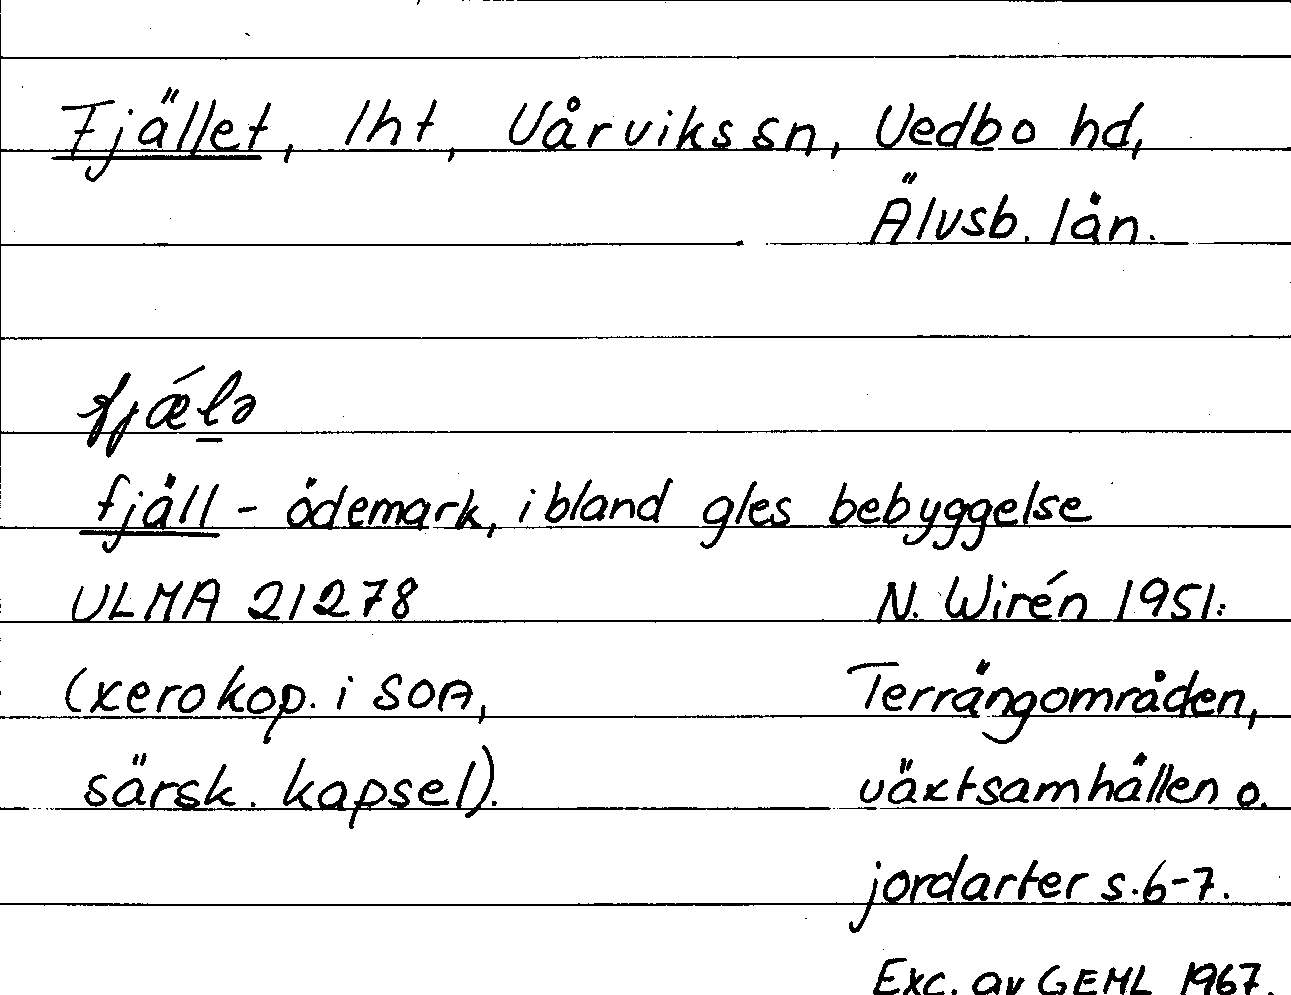 Fjället, lht, Vårviks sn, Vedbo hd,
Älvsb. län.
fjǽlə
fjäll - ödemark, ibland gles bebyggelse
ULMA 21278
N. Wirén 1951:
(xerokop. i SOA,
Terrängområden,
särsk. kapsel).
växtsamhällen o.
jordarter s. 6-7.
Exc. av GEML 1967.